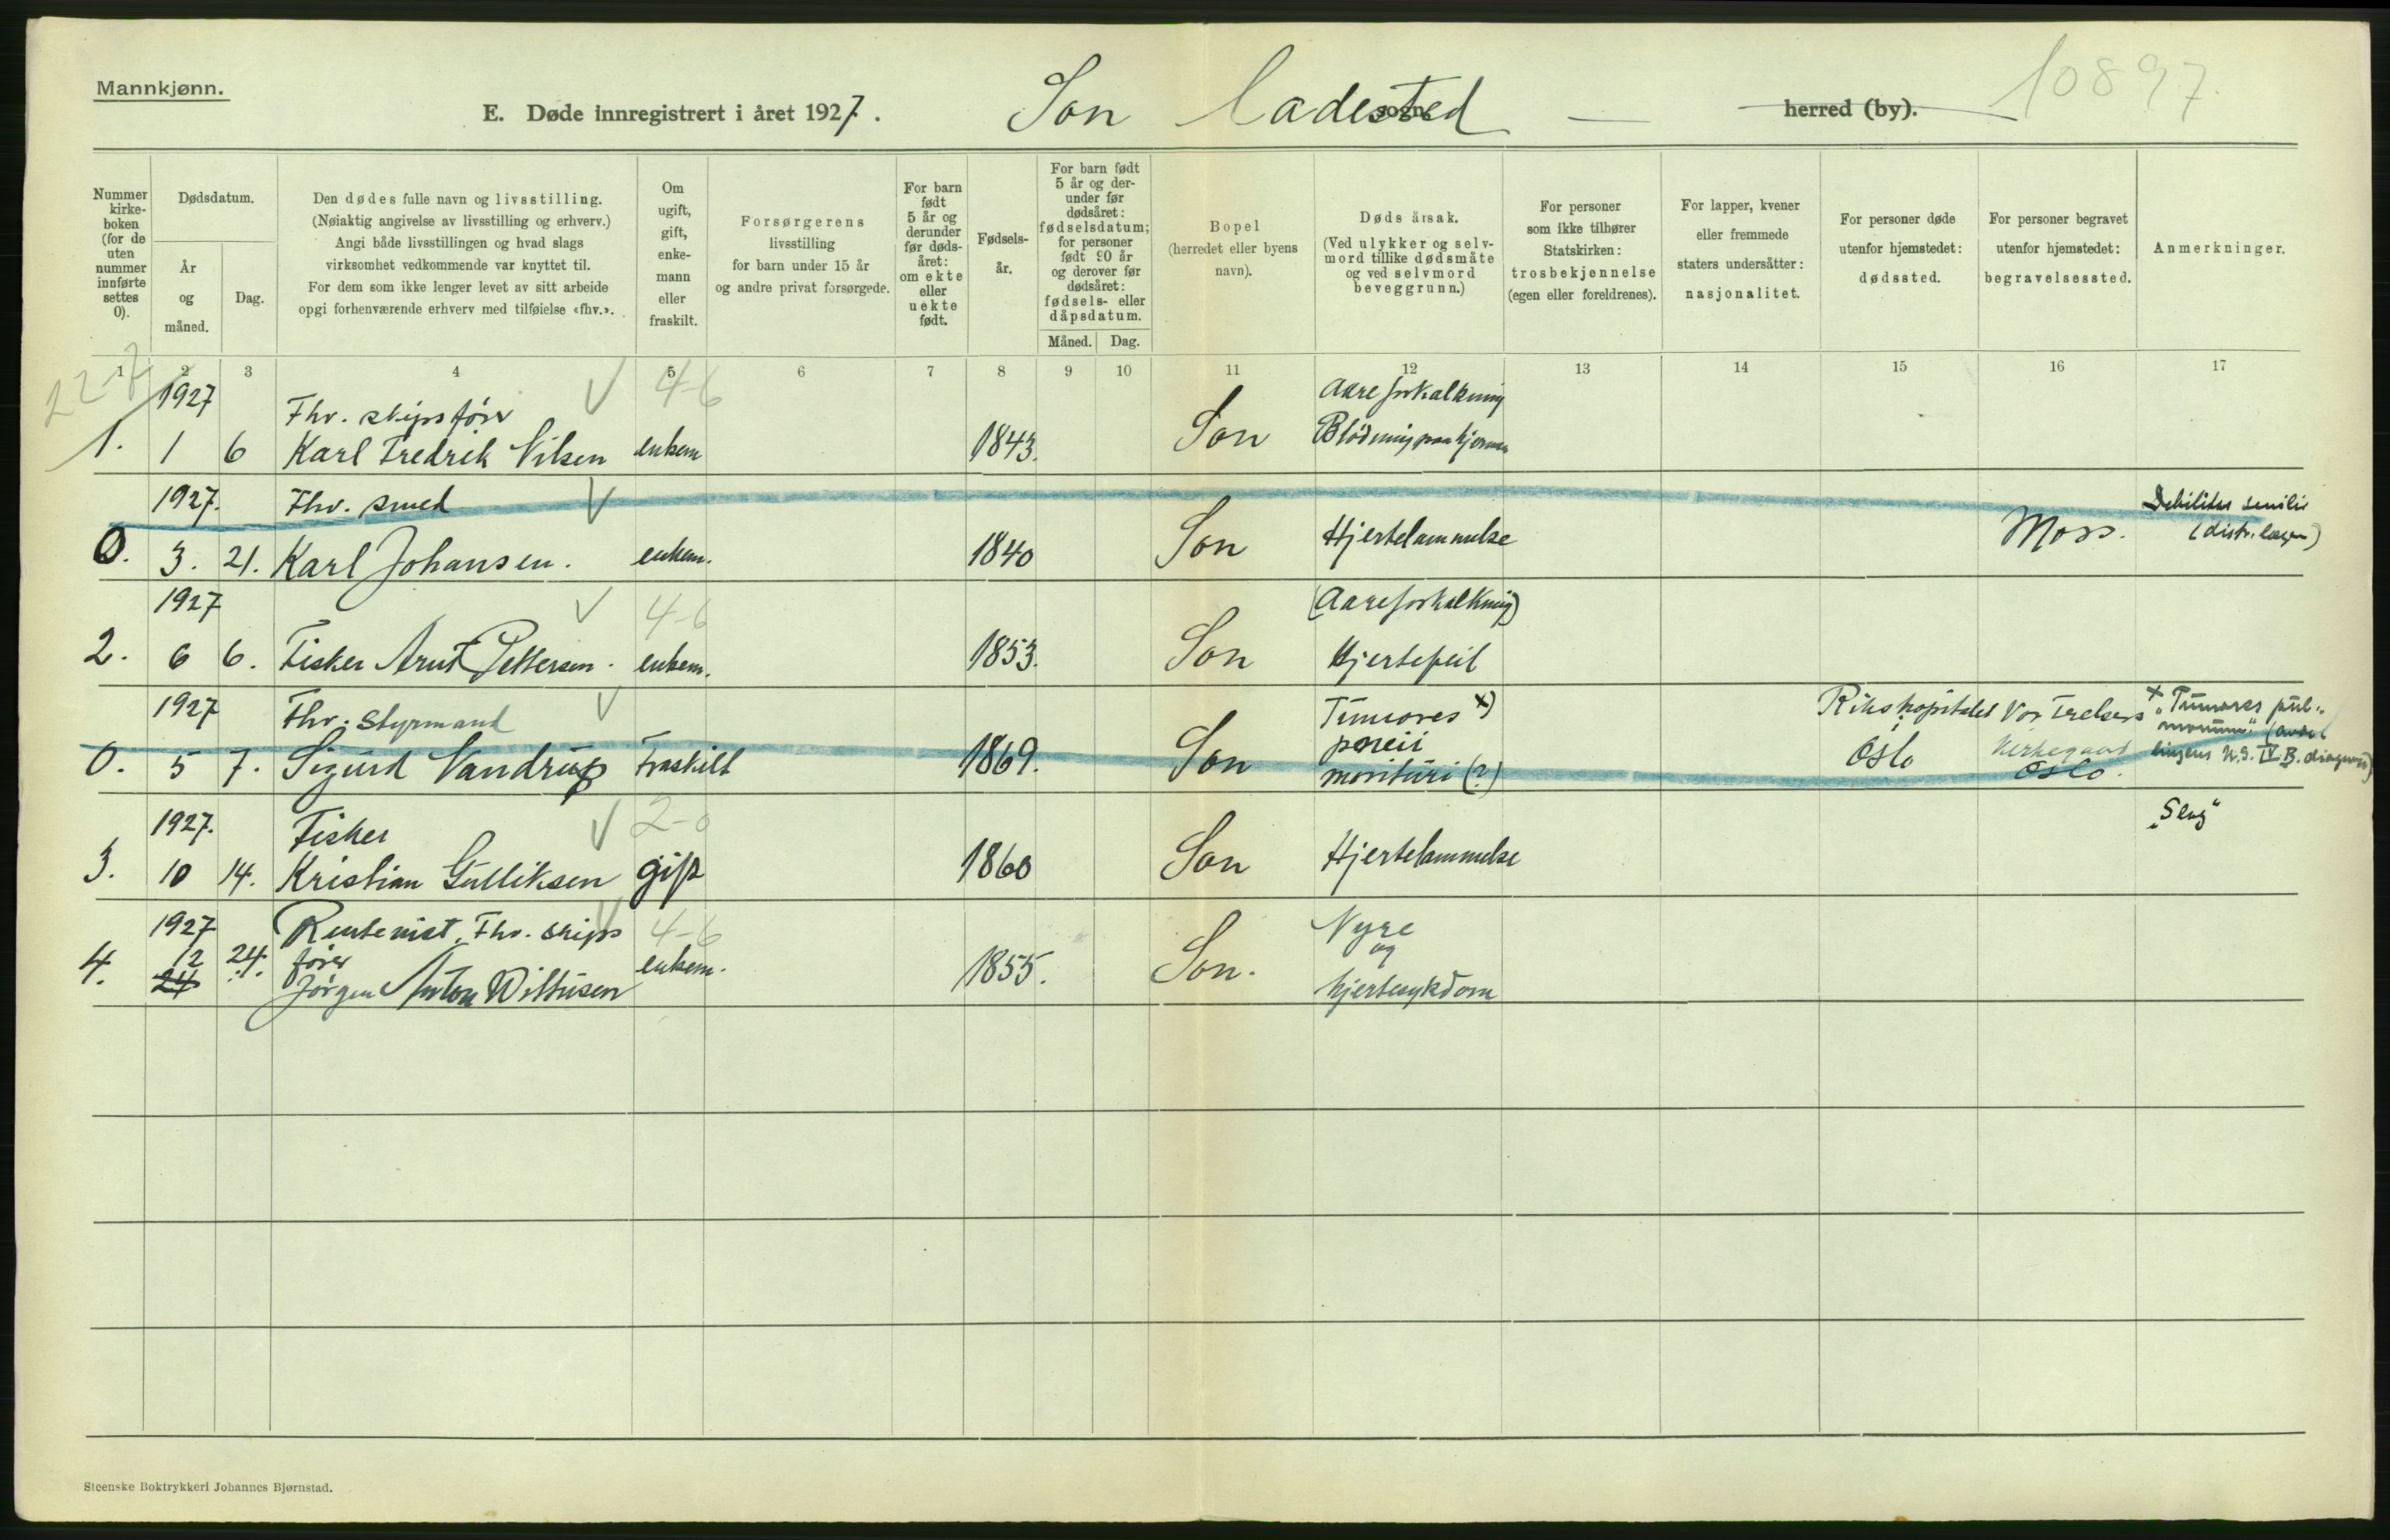 Mannkjønn.
E. Døde innregistrert i året 1927. Son Ladested sogn — herred (by). 10897.
Nummer kirke-boken (for de uten nummer innførte settes 0).
Dødsdatum.
År og måned.
Dag.
Den dødes fulle navn og livsstilling.
(Nøiaktig angivelse av livsstilling og erhverv.)
Angi både livsstillingen og hvad slags
virksomhet vedkommende var knyttet til.
For dem som ikke lenger levet av sitt arbeide
opgi forhenværende erhverv med tilføielse «fhv.».
Om ugift, gift, enke-mann eller fraskilt.
Forsørgerens
livsstilling
for barn under 15 år
og andre privat forsørgede.
For barn født 5 år og derunder før døds-året: om ekte eller uekte født.
Fødsels-år.
For barn født 5 år og der-under før dødsåret: fødselsdatum; for personer født 90 år og derover før dødsåret: fødsels- eller dåpsdatum.
Måned. Dag.
Bopel
(herredet eller byens
navn).
Dødsårsak.
(Ved ulykker og selv-
mord tillike dødsmåte
og ved selvmord
beveggrunn.)
For personer
som ikke tilhører
Statskirken:
trosbekjennelse
(egen eller foreldrenes).
For lapper, kvener
eller fremmede
staters undersåtter:
nasjonalitet.
For personer døde
utenfor hjemstedet:
dødssted.
For personer begravet
utenfor hjemstedet:
begravelsessted.
Anmerkninger.
1 2 3 4 5 6 7 8 9 10 11 12 13 14 15 16 17
1927 Fhv. skipsfører 4-6 Aareforkalkning
1. 1 6 Karl Fredrik Nilsen enkem 1843. Son Blödning paa hjernen
1927. Fhv. smed Debilitas senilis
0. 3. 21. Karl Johansen. enkem. 1840 Son Hjertelammelse Moss. (distr. lægen)
1927 4-6 (Aareforkalkning)
2. 6 6. Fisker Arnt Pettersen. enkem. 1853. Son Hjertefeil
1927 Fhv. Styrmand Tumores x) Rikshospitalet Vor Frelsers x "Tumores pul-
0. 5 7. Sigurd Vandrup Fraskilt 1869. Son Oslo Kirkegaard Oslo.
morituri (?)
IV B. diagnose)
1927. Fisker 2-0
3. 10 14. Kristian Gulliksen gift 1860 Son Hjertelammelse
1927 Rentenist, Fhv. skips 4-6 Nyre
4. 12 24 24. fører enkem. 1855. Son. og
Jörgen Anton Wiltusen hjertesykdom
Steenske Boktrykkeri Johannes Bjørnstad.